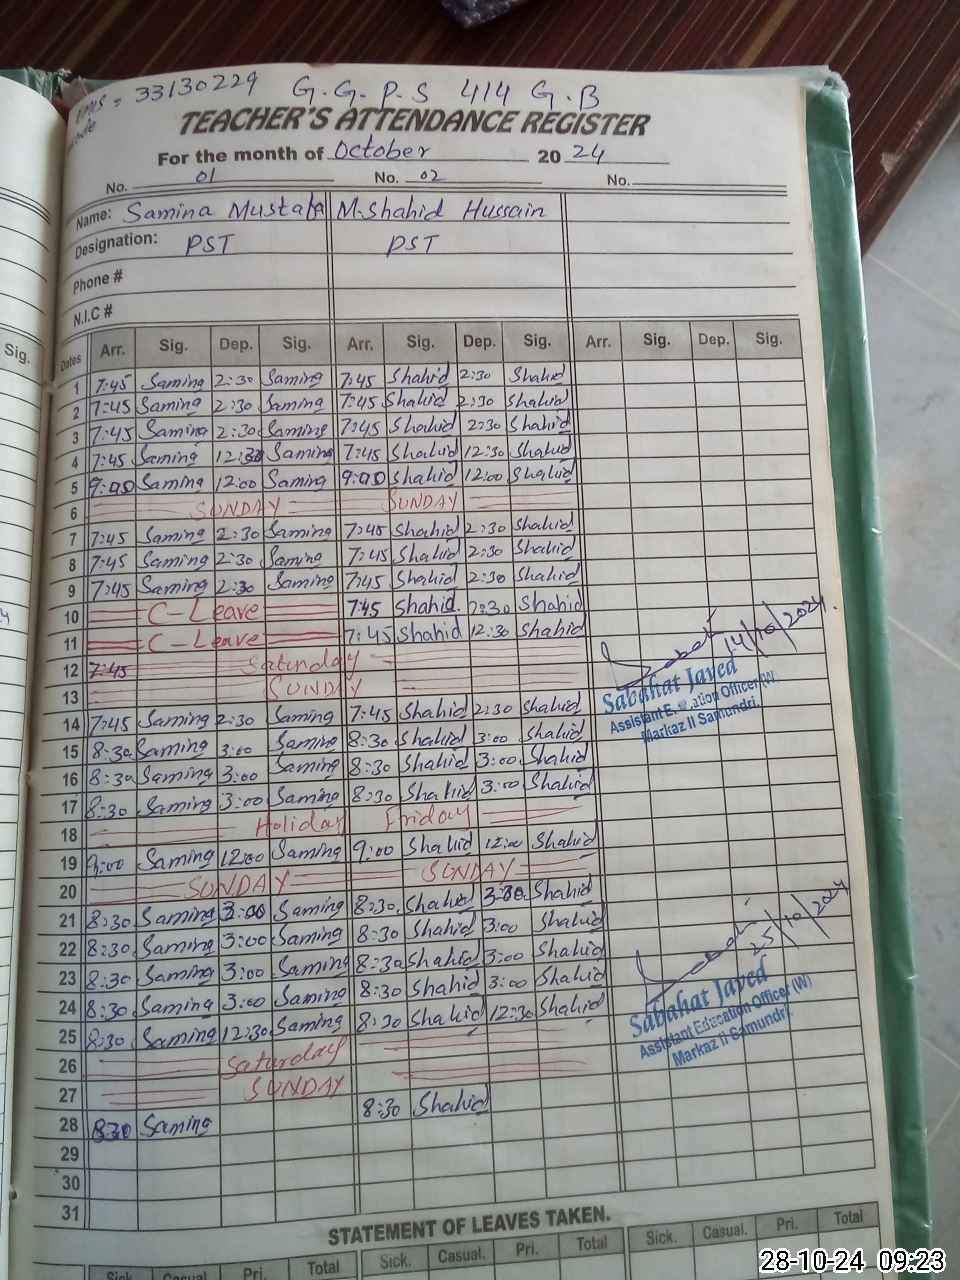 EMIS = 33130229 G.G.P.S 414 G.B
Code
TEACHER'S ATTENDANCE REGISTER
For the month of October 2024
No. 01 No. 02 No.
Name: Samina Mustafa M.Shahid Hussain
Designation: PST PST
Phone #
N.I.C #
Sig.
Dates Arr. Sig. Dep. Sig. Arr. Sig. Dep. Sig. Arr. Sig. Dep. Sig.
1 7:45 Samina 2:30 Samina 7:45 Shahid 2:30 Shahid
2 7:45 Samina 2:30 Samina 7:45 Shahid 2:30 Shahid
3 7:45 Samina 2:30 Samina 7:45 Shahid 2:30 Shahid
4 7:45 Samina 12:30 Samina 7:45 Shahid 12:30 Shahid
5 9:00 Samina 12:00 Samina 9:00 Shahid 12:00 Shahid
6 SUNDAY SUNDAY
7 7:45 Samina 2:30 Samina 7:45 Shahid 2:30 Shahid
8 7:45 Samina 2:30 Samina 7:45 Shahid 2:30 Shahid
9 7:45 Samina 2:30 Samina 7:45 Shahid 2:30 Shahid
10 C-Leave 7:45 Shahid 2:30 Shahid
11 C-Leave 7:45 Shahid 12:30 Shahid
12 7:45 Saturday
13 SUNDAY
14/10/2024
Sabahat Javed
Assistant Education Officer (W)
Markaz II Samundri.
14 7:45 Samina 2:30 Samina 7:45 Shahid 2:30 Shahid
15 8:30 Samina 3:00 Samina 8:30 Shahid 3:00 Shahid
16 8:30 Samina 3:00 Samina 8:30 Shahid 3:00 Shahid
17 8:30 Samina 3:00 Samina 8:30 Shahid 3:00 Shahid
18 Holiday Friday
19 9:00 Samina 12:00 Samina 9:00 Shahid 12:00 Shahid
20 SUNDAY SUNDAY
21 8:30 Samina 3:00 Samina 8:30 Shahid 3:00 Shahid
22 8:30 Samina 3:00 Samina 8:30 Shahid 3:00 Shahid
23 8:30 Samina 3:00 Samina 8:30 Shahid 3:00 Shahid
24 8:30 Samina 3:00 Samina 8:30 Shahid 3:00 Shahid
25 8:30 Samina 12:30 Samina 8:30 Shahid 12:30 Shahid
25/10/2024
Sabahat Javed
Assistant Education Officer (W)
Markaz II Samundri.
26 Saturday
27 SUNDAY
28 8:30 Samina 8:30 Shahid
29
30
31
STATEMENT OF LEAVES TAKEN.
Sick Casual Pri. Total Sick. Casual. Pri. Total Sick. Casual. Pri. Total
28-10-24 09:23